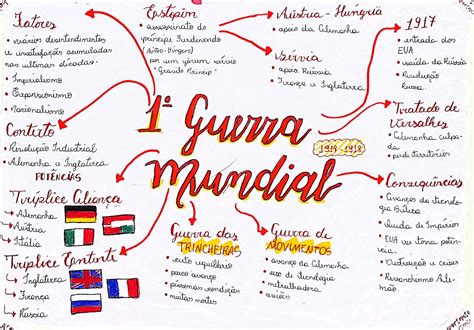 Fatores
• vários desentendimentos
e insatisfações acumuladas
nas últimas décadas.
• Imperialismo
• Expansionismo
• Nacionalismo
Contexto
• Revolução Industrial
• Alemanha e Inglaterra
POTÊNCIAS
Tríplice Aliança
• Alemanha
• Áustria
• Itália
Tríplice Entente
• Inglaterra
• França
• Rússia
Estopim
assassinato do
príncipe Ferdinando
(Austro-Húngaro)
por um jovem
Áustria Hungria
• apoio da Alemanha
Sérvia
• apoio Rússia
• França e Inglaterra
1917
• entrada dos
EUA
• saída da Rússia
• Revolução
Russa
1ª Guerra
Mundial
1914 - 1918
Tratado de
Versalhes
• Alemanha culpada
• perde territórios
Consequências
• Avanços da tecnologia
bélica
• Queda de Impérios
• EUA
• Avanços e crises
• Revanchismo Alemão
Guerra das
TRINCHEIRAS
• certo equilíbrio
• pouco avanço
• péssimas condições
• muitas mortes
Guerra de
MOVIMENTOS
• avanço da Alemanha
• uso de tecnologia
• metralhadora
• aviões